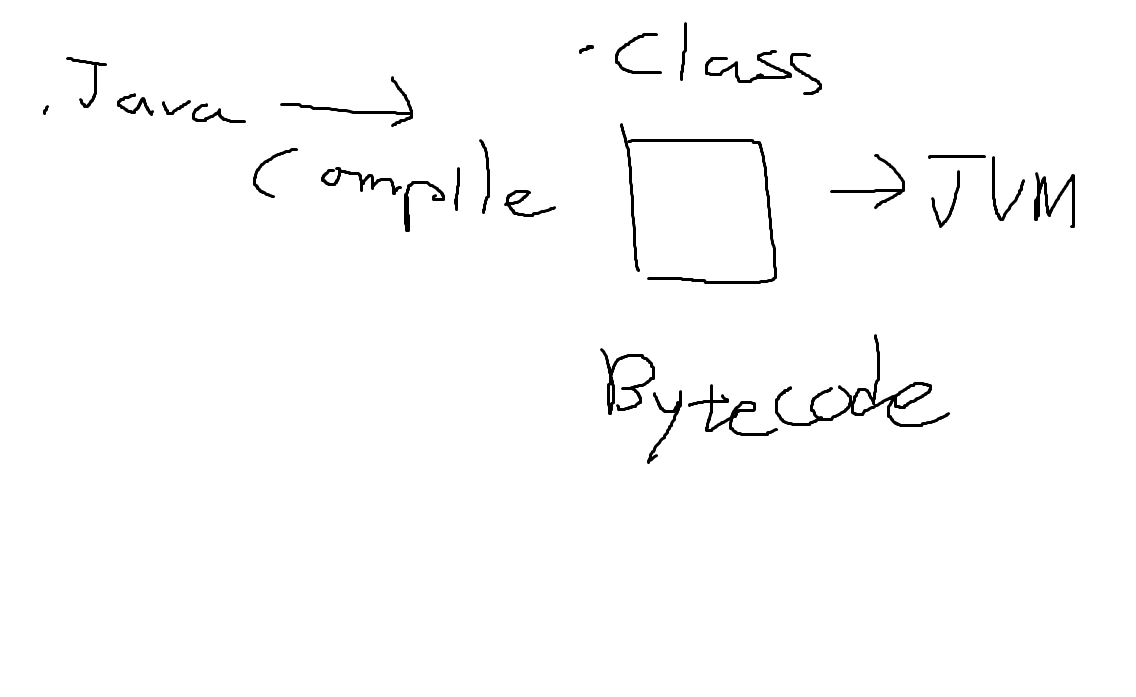 .Java
Compile
.Class
JVM
Bytecode